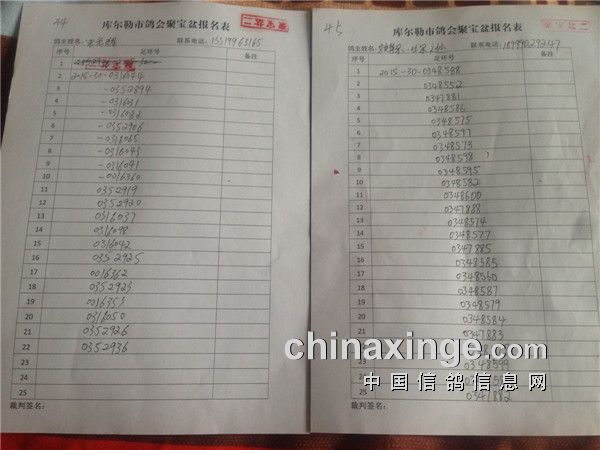 44
库尔勒市鸽会聚宝盆报名表
鸽主姓名: 联系电话: 15519963165
序号 足环号 备注
1
2 2015-30-0316044
3 -0352894
4 -031631
5 -0316032
6 -0352906
7 -0316065
8 -0316043
9 -0316041
10 -0016360
11 0352919
12 0352920
13 0316037
14 0316098
15 0316042
16 0352925
17 0016362
18 0352923
19 0016353
20 0316050
21 0352926
22 0352936
23
24
25
裁判签名:
45
库尔勒市鸽会聚宝盆报名表
鸽主姓名: 联系电话:
序号 足环号 备注
1 2015-30-0348588
2 0348552
3 0347881
4 0348586
5 0348575
6 0348597
7 0348573
8 0348598
9 0348595
10 0348582
11 0348600
12 0347888
13 0348574
14 0348577
15 0347885
16 0348585
17 0348560
18 0348587
19 0348579
20 0348584
21 0347883
22
23
24
25 0347882
裁判签名:
chinaxinge.com
中国信鸽信息网